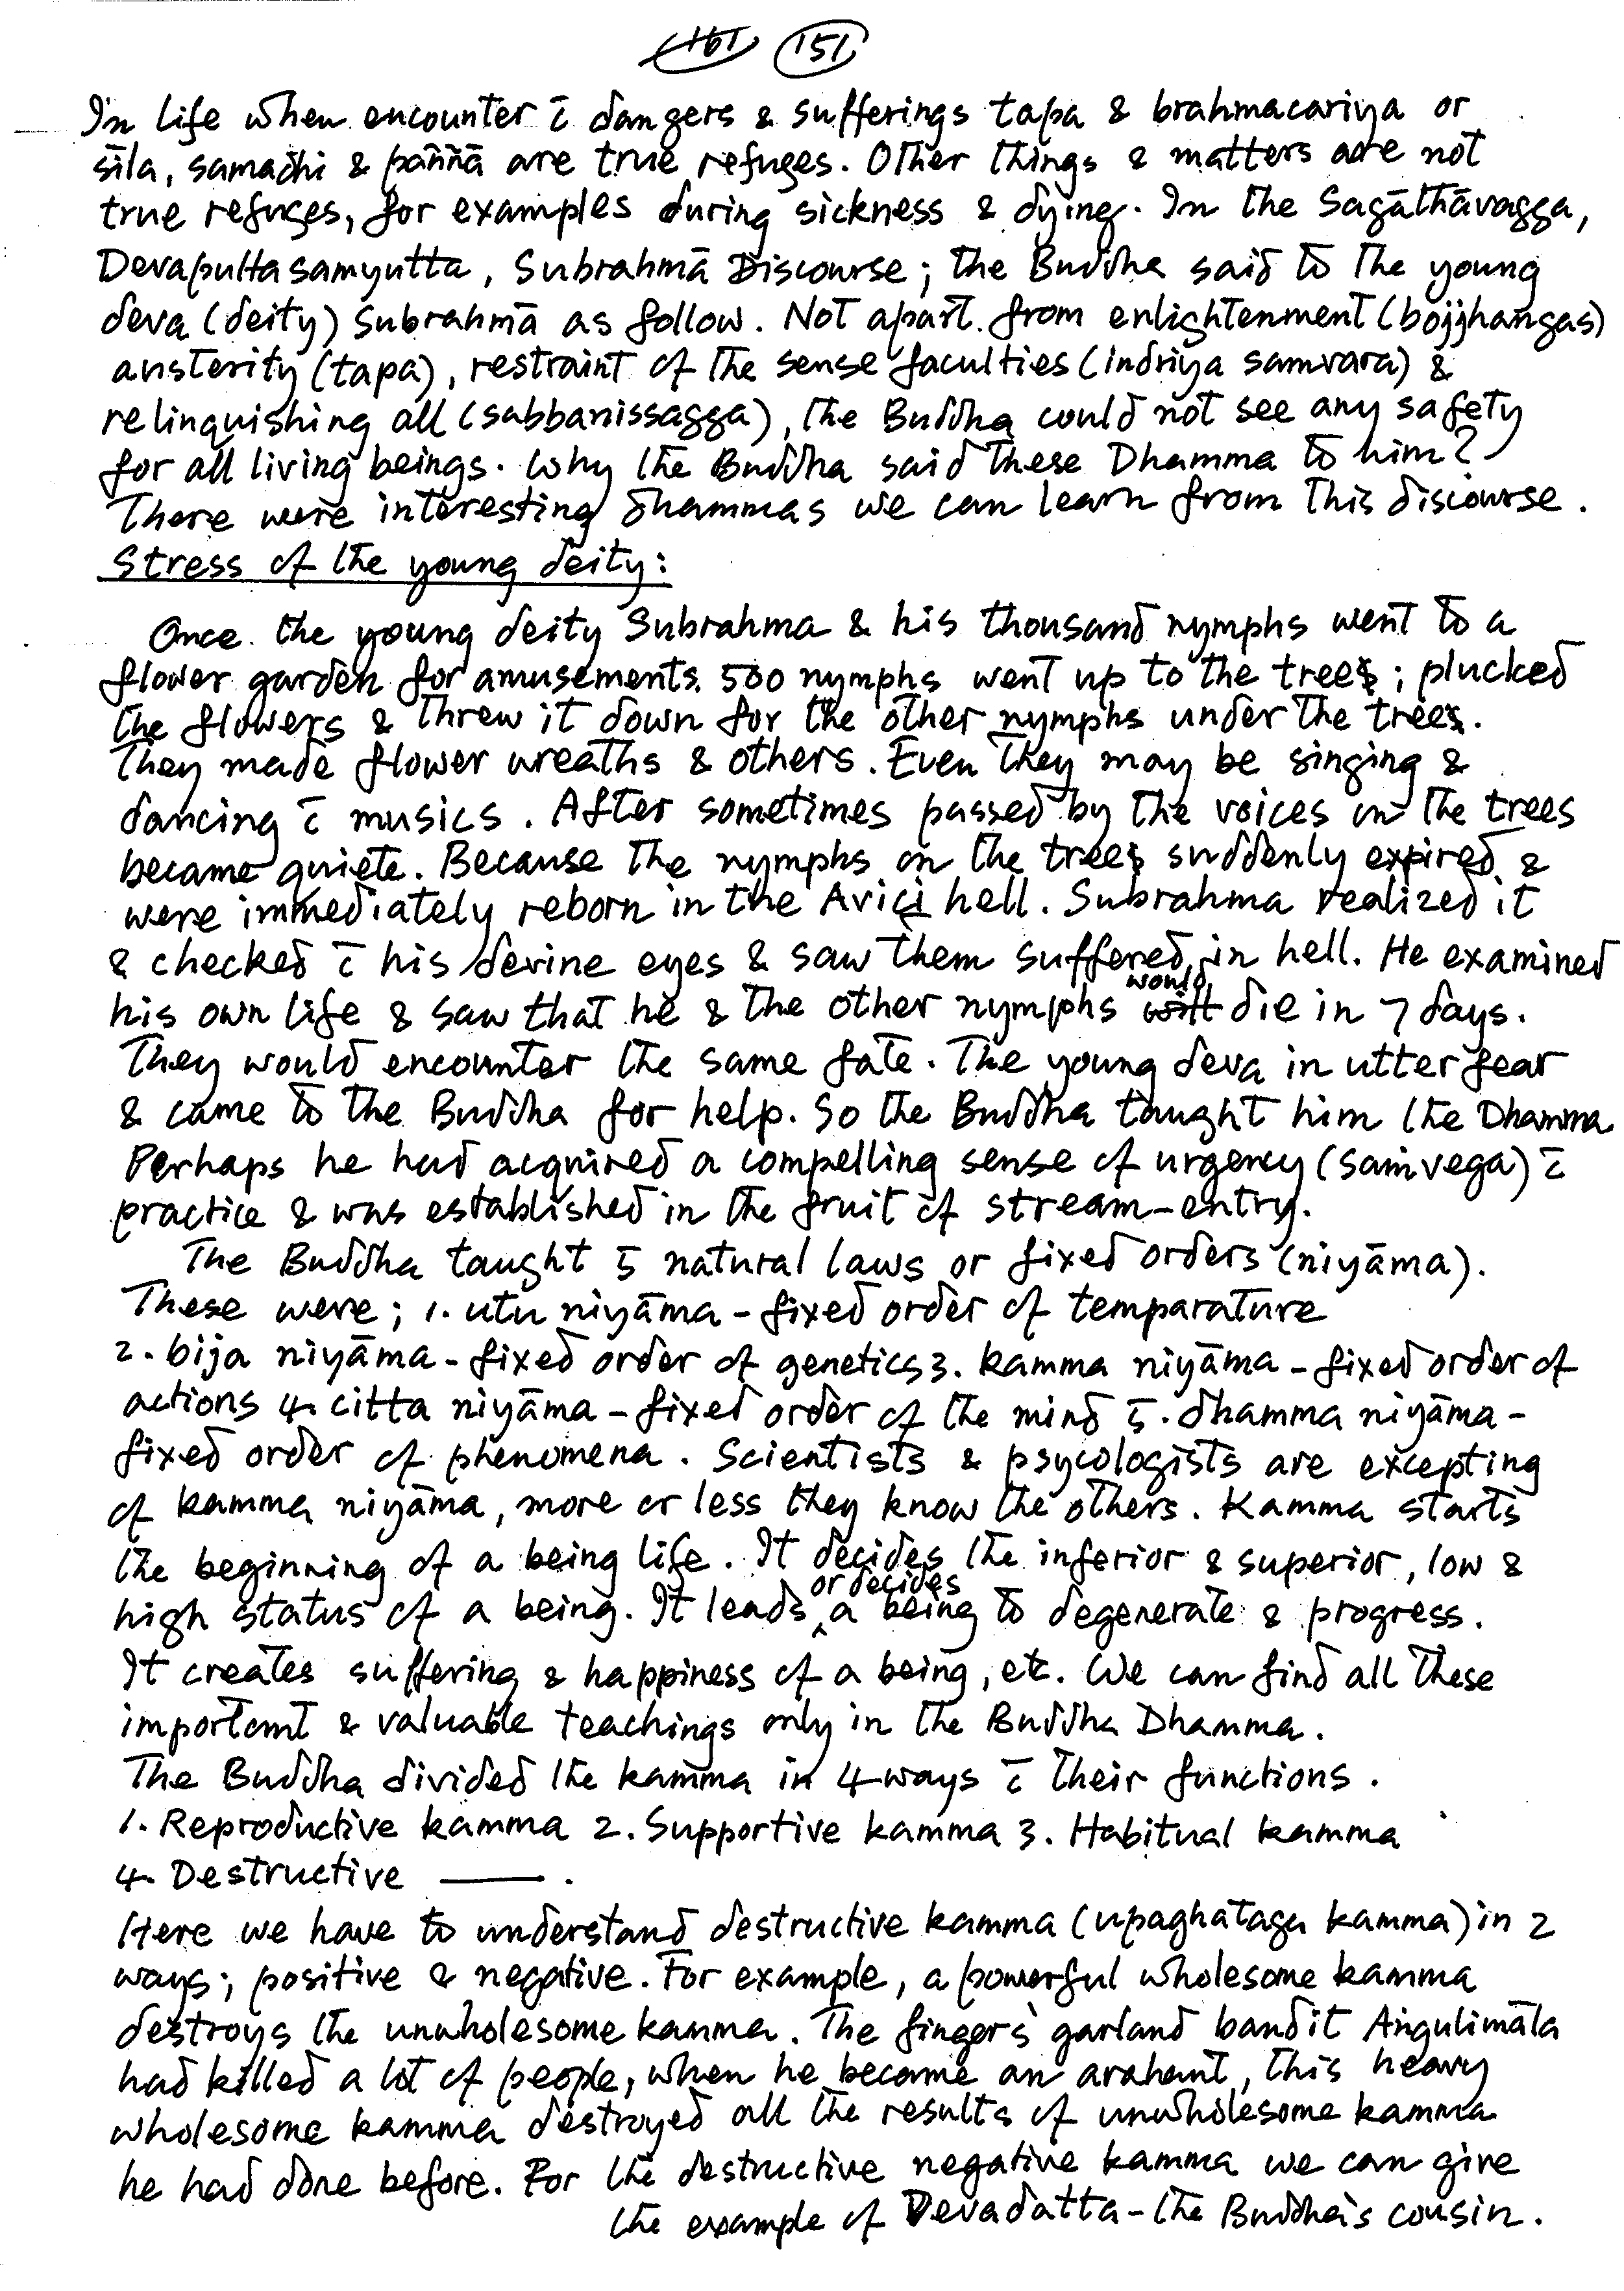 151
In life when encounter c̄ dangers & sufferings tapa & brahmacariya or
sīla, samadhi & paññā are true refuges. Other things & matters are not
true refuges, for examples during sickness & dying. In the Sagāthāvagga,
Devaputtasamyutta, Subrahmā Discourse; the Buddha said to the young
deva (deity) Subrahmā as follow. Not apart from enlightenment (bojjhaṅgas)
austerity (tapa), restraint of the sense faculties (indriya samvara) &
relinquishing all (sabbanissagga), the Buddha could not see any safety
for all living beings. Why the Buddha said these Dhamma to him?
There were interesting dhammas we can learn from this discourse.
Stress of the young deity:
Once the young deity Subrahma & his thousand nymphs went to a
flower garden for amusements. 500 nymphs went up to the trees; plucked
the flowers & threw it down for the other nymphs under the trees.
They made flower wreaths & others. Even they may be singing &
dancing c̄ musics. After sometimes passed by the voices on the trees
became quiete. Because the nymphs on the trees suddenly expired &
were immediately reborn in the Avici hell. Subrahma realized it
& checked c̄ his devine eyes & saw them suffered in hell. He examined
his own life & saw that he & the other nymphs would die in 7 days.
They would encounter the same fate. The young deva in utter fear
& came to the Buddha for help. So the Buddha taught him the Dhamma
Perhaps he had acquired a compelling sense of urgency (saṁvega) c̄
practice & was established in the fruit of stream-entry.
The Buddha taught 5 natural laws or fixed orders (niyāma).
These were; 1. utu niyāma - fixed order of temparature
2. bija niyāma - fixed order of genetics 3. kamma niyāma - fixed order of
actions 4. citta niyāma - fixed order of the mind 5. dhamma niyāma -
fixed order of phenomena. Scientists & psycologists are excepting
of kamma niyāma, more or less they know the others. Kamma starts
the beginning of a being life. It decides the inferior & superior, low &
high status of a being. It leads or decides a being to degenerate & progress.
It creates suffering & happiness of a being, etc. We can find all these
important & valuable teachings only in the Buddha Dhamma.
The Buddha divided the kamma in 4 ways c̄ their functions.
1. Reproductive kamma 2. Supportive kamma 3. Habitual kamma
4. Destructive ——.
Here we have to understand destructive kamma (upaghātaga kamma) in 2
ways; positive & negative. For example, a powerful wholesome kamma
destroys the unwholesome kamma. The finger's garland bandit Aṅgulimāla
had killed a lot of people, when he became an arahant, this heavy
wholesome kamma destroyed all the results of unwholesome kamma
he had done before. For the destructive negative kamma we can give
the example of Devadatta - the Buddha's cousin.